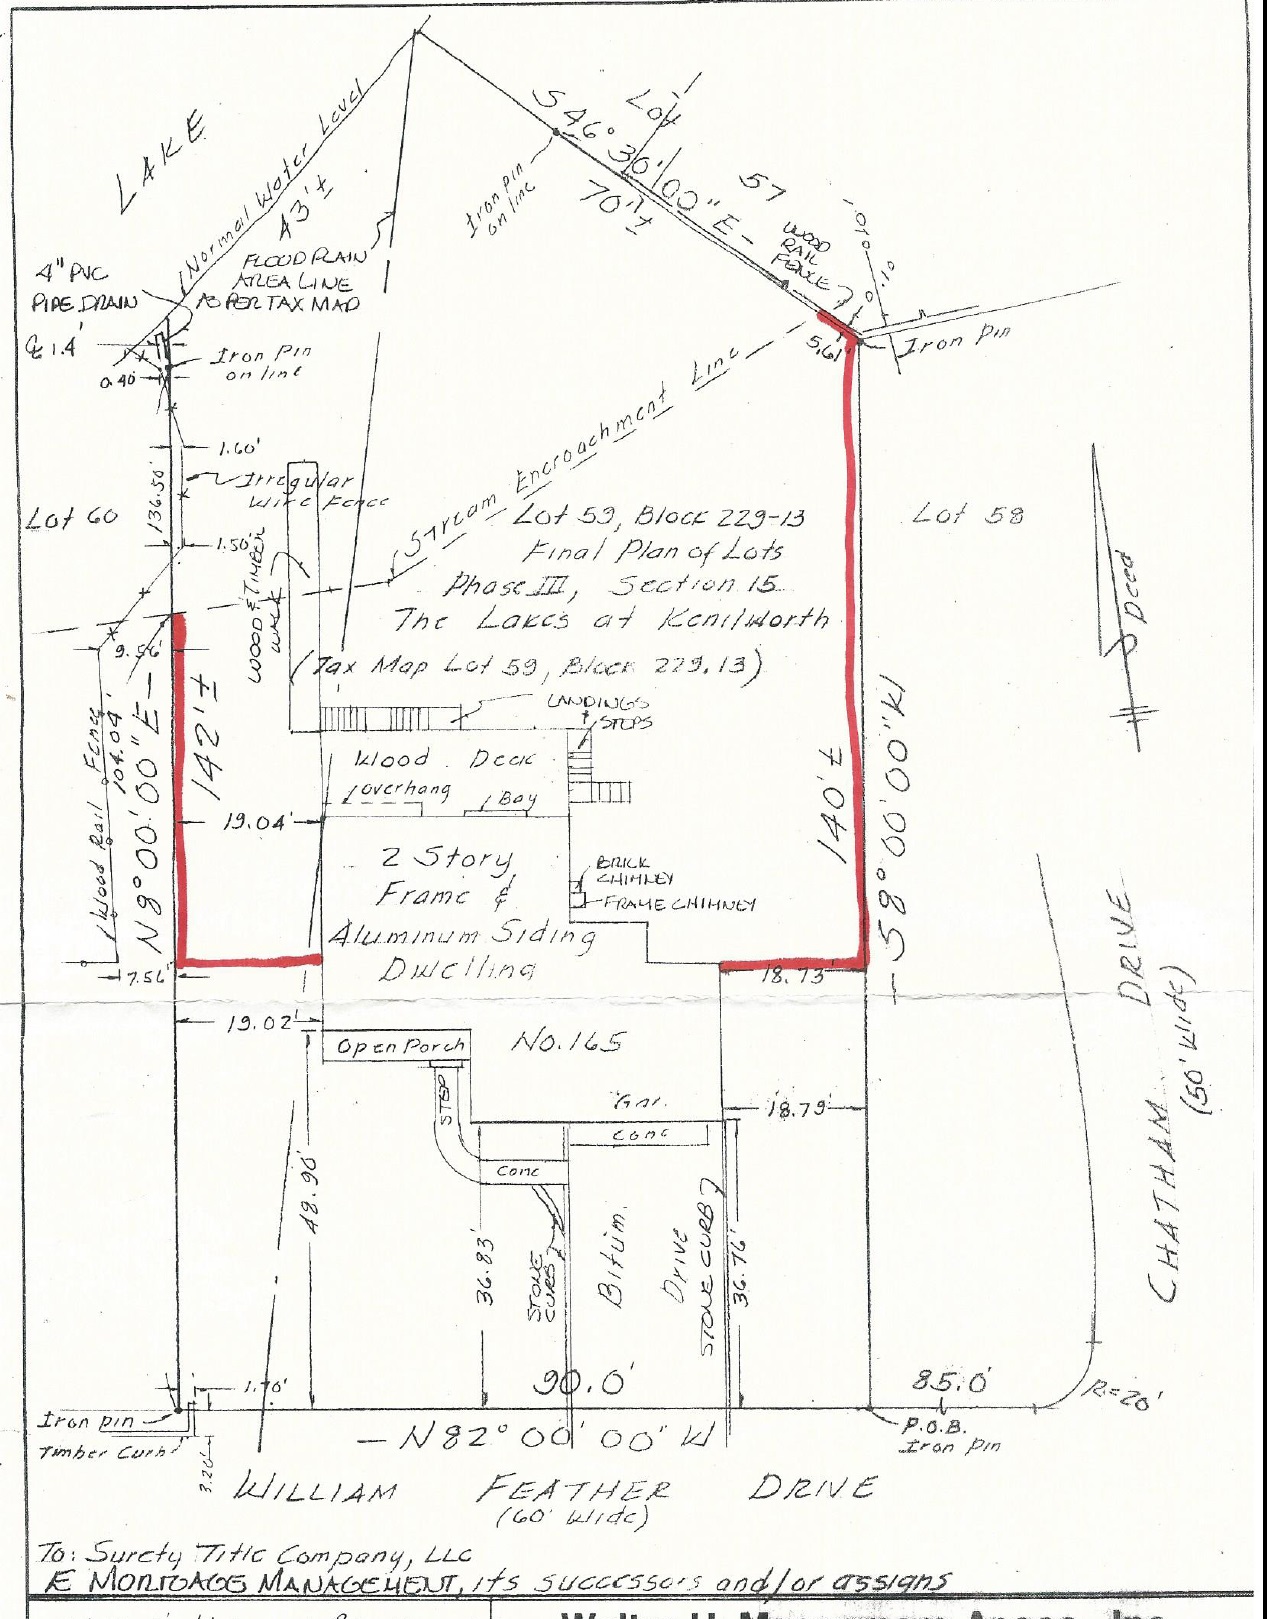 LAKE
Normal Water Level
43'±
S 46° 30' 00" E -
70'±
Lot
57
Iron pin
on line
WOOD
RAIL
FENCE
FLOOD PLAIN
AREA LINE
AS PER TAX MAP
4" PVC
PIPE DRAIN
℄ 1.4'
0.40'
Iron Pin
on line
5.61'
Iron Pin
1.60'
Irregular
Wire Fence
136.50'
1.50'
Lot 60
Stream Encroachment Line
WOOD & TIMBER
WALK
Lot 59, Block 229-13
Final Plan of Lots
Phase III, Section 15
The Lakes at Kenilworth
(Tax Map Lot 59, Block 229.13)
Lot 58
Deed
9.56'
Wood Rail Fence
104.04'
N 8° 00' 00" E -
142'±
LANDINGS
& STEPS
Wood Deck
overhang
Bay
19.04'
2 Story
Frame &
Aluminum Siding
Dwelling
BRICK
CHIMNEY
FRAME CHIMNEY
140'±
- S 8° 00' 00" W
7.56'
18.73'
19.02'
Open Porch
No. 165
STEP
Gar.
Conc
18.79'
Conc
48.90'
36.83'
STONE
CURB
Bitum.
Drive
STONE CURB
36.76'
CHATHAM DRIVE
(50' Wide)
1.70'
90.0'
85.0'
R=20'
Iron pin
Timber Curb
3.20'
- N 82° 00' 00" W
P.O.B.
Iron Pin
WILLIAM FEATHER DRIVE
(60' Wide)
To: Surety Title Company, LLC
E MORTGAGE MANAGEMENT, its successors and/or assigns